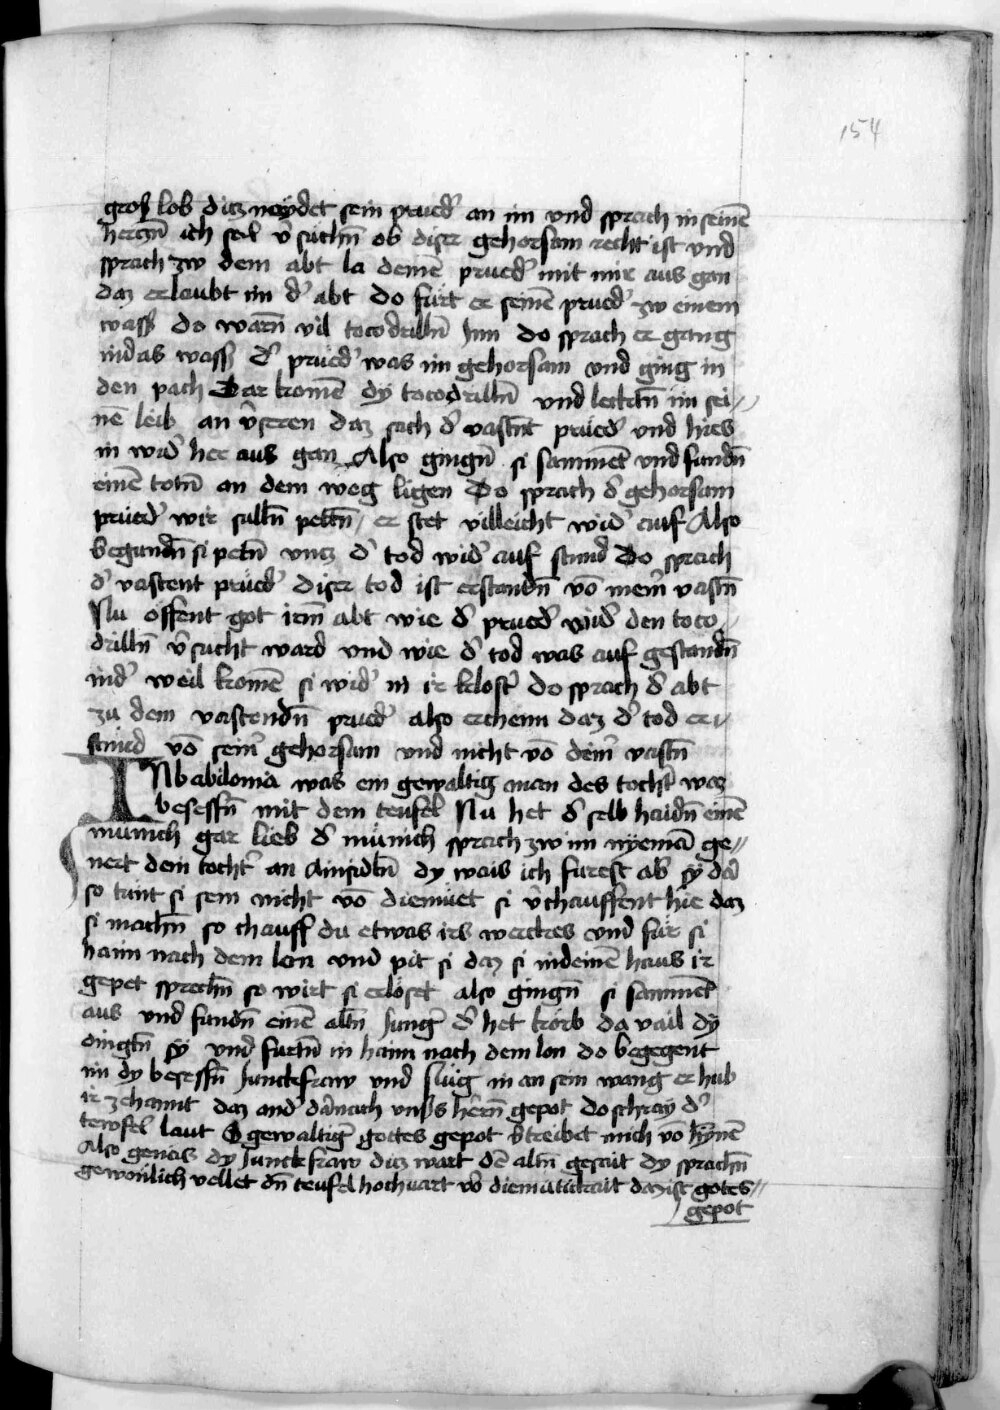 154
groß lob ditz neydet sein prued' an im vnd sprach in seinē
herczn̄ ich sol v̄suchn̄ ob diser gehorsam recht ist vnd
sprach zw dem abt la deinē prued' mit mir aus gan
daz erlaubt im d' abt do fürt er seinē prued' zw einem
wass' do warn̄ vil cocodrilln̄ Inn do sprach er gang
in das wass' d' prüed' was im gehorsam vnd ging in
den pach Dar komē dy cocodrilln̄ vnd lecktn̄ im sei//
nē leib an v̄seren daz sach d' vastn̄t prüed' vnd hies
in wid' her aus gan Also gingn̄ si sammēt vnd fundn̄
einē totn̄ an dem weg ligen Do sprach d' gehorsam
prüed' wir sulln̄ pettn̄ / er stet villeicht wid' auf Also
begundn̄ si petn̄ vncz d' tod wid' auf stund Do sprach
d' vastent prüed' diser tod ist erstandn̄ vō meim̄ vastn̄
Nu offent got irm̄ abt wie d' prued' vnd' den coco//
drilln̄ v̄sucht ward vnd wie d' tod was auf gestandn̄
in d' weil komē si wid' in ir klost' do sprach d' abt
zu dem vastendn̄ prued' also erchenn daz d' tod er//
stund vō seim̄ gehorsam vnd nicht vō deim̄ vastn̄
IN babilonia was ein gewaltig man des tocht' waz
besessn̄ mit dem teufel Nu het d' selb haidn̄ einē
munich gar lieb d' münich sprach zw im nyemā ge//
nert dein tocht' an ainsidln̄ dy wais ich furest ab' sy dar
so tunt si sein nicht vō diemüet si v̄chauffent hie daz
si machn̄ so chauff du etwas irs werckes vnd für si
haim nach dem lon vnd pit si daz si in deinē haus ir
gepet sprechn̄ so wirt si erlöset also gingn̄ si sammēt
aus vnd fundn̄ einē altn̄ Jung' d' het korb da vail dy
dingtn̄ sy vnd furtn̄ in haim nach dem lon do begegent
im dy besessn̄ Junckfraw vnd slüg in an sein wang er hub
ir zehannt daz and' dar nach vns's herrn̄ gepot do schray d'
tewfel laut O gewaltig' gottes gepot v̄treibet mich vō hynnē
Also genas dy Junckfraw ditz wart dē altn̄ gesait dy sprachn̄
gewonlich vellet dn̄ teufel hochuart vō diemütickait daz ist gotes//
gepot